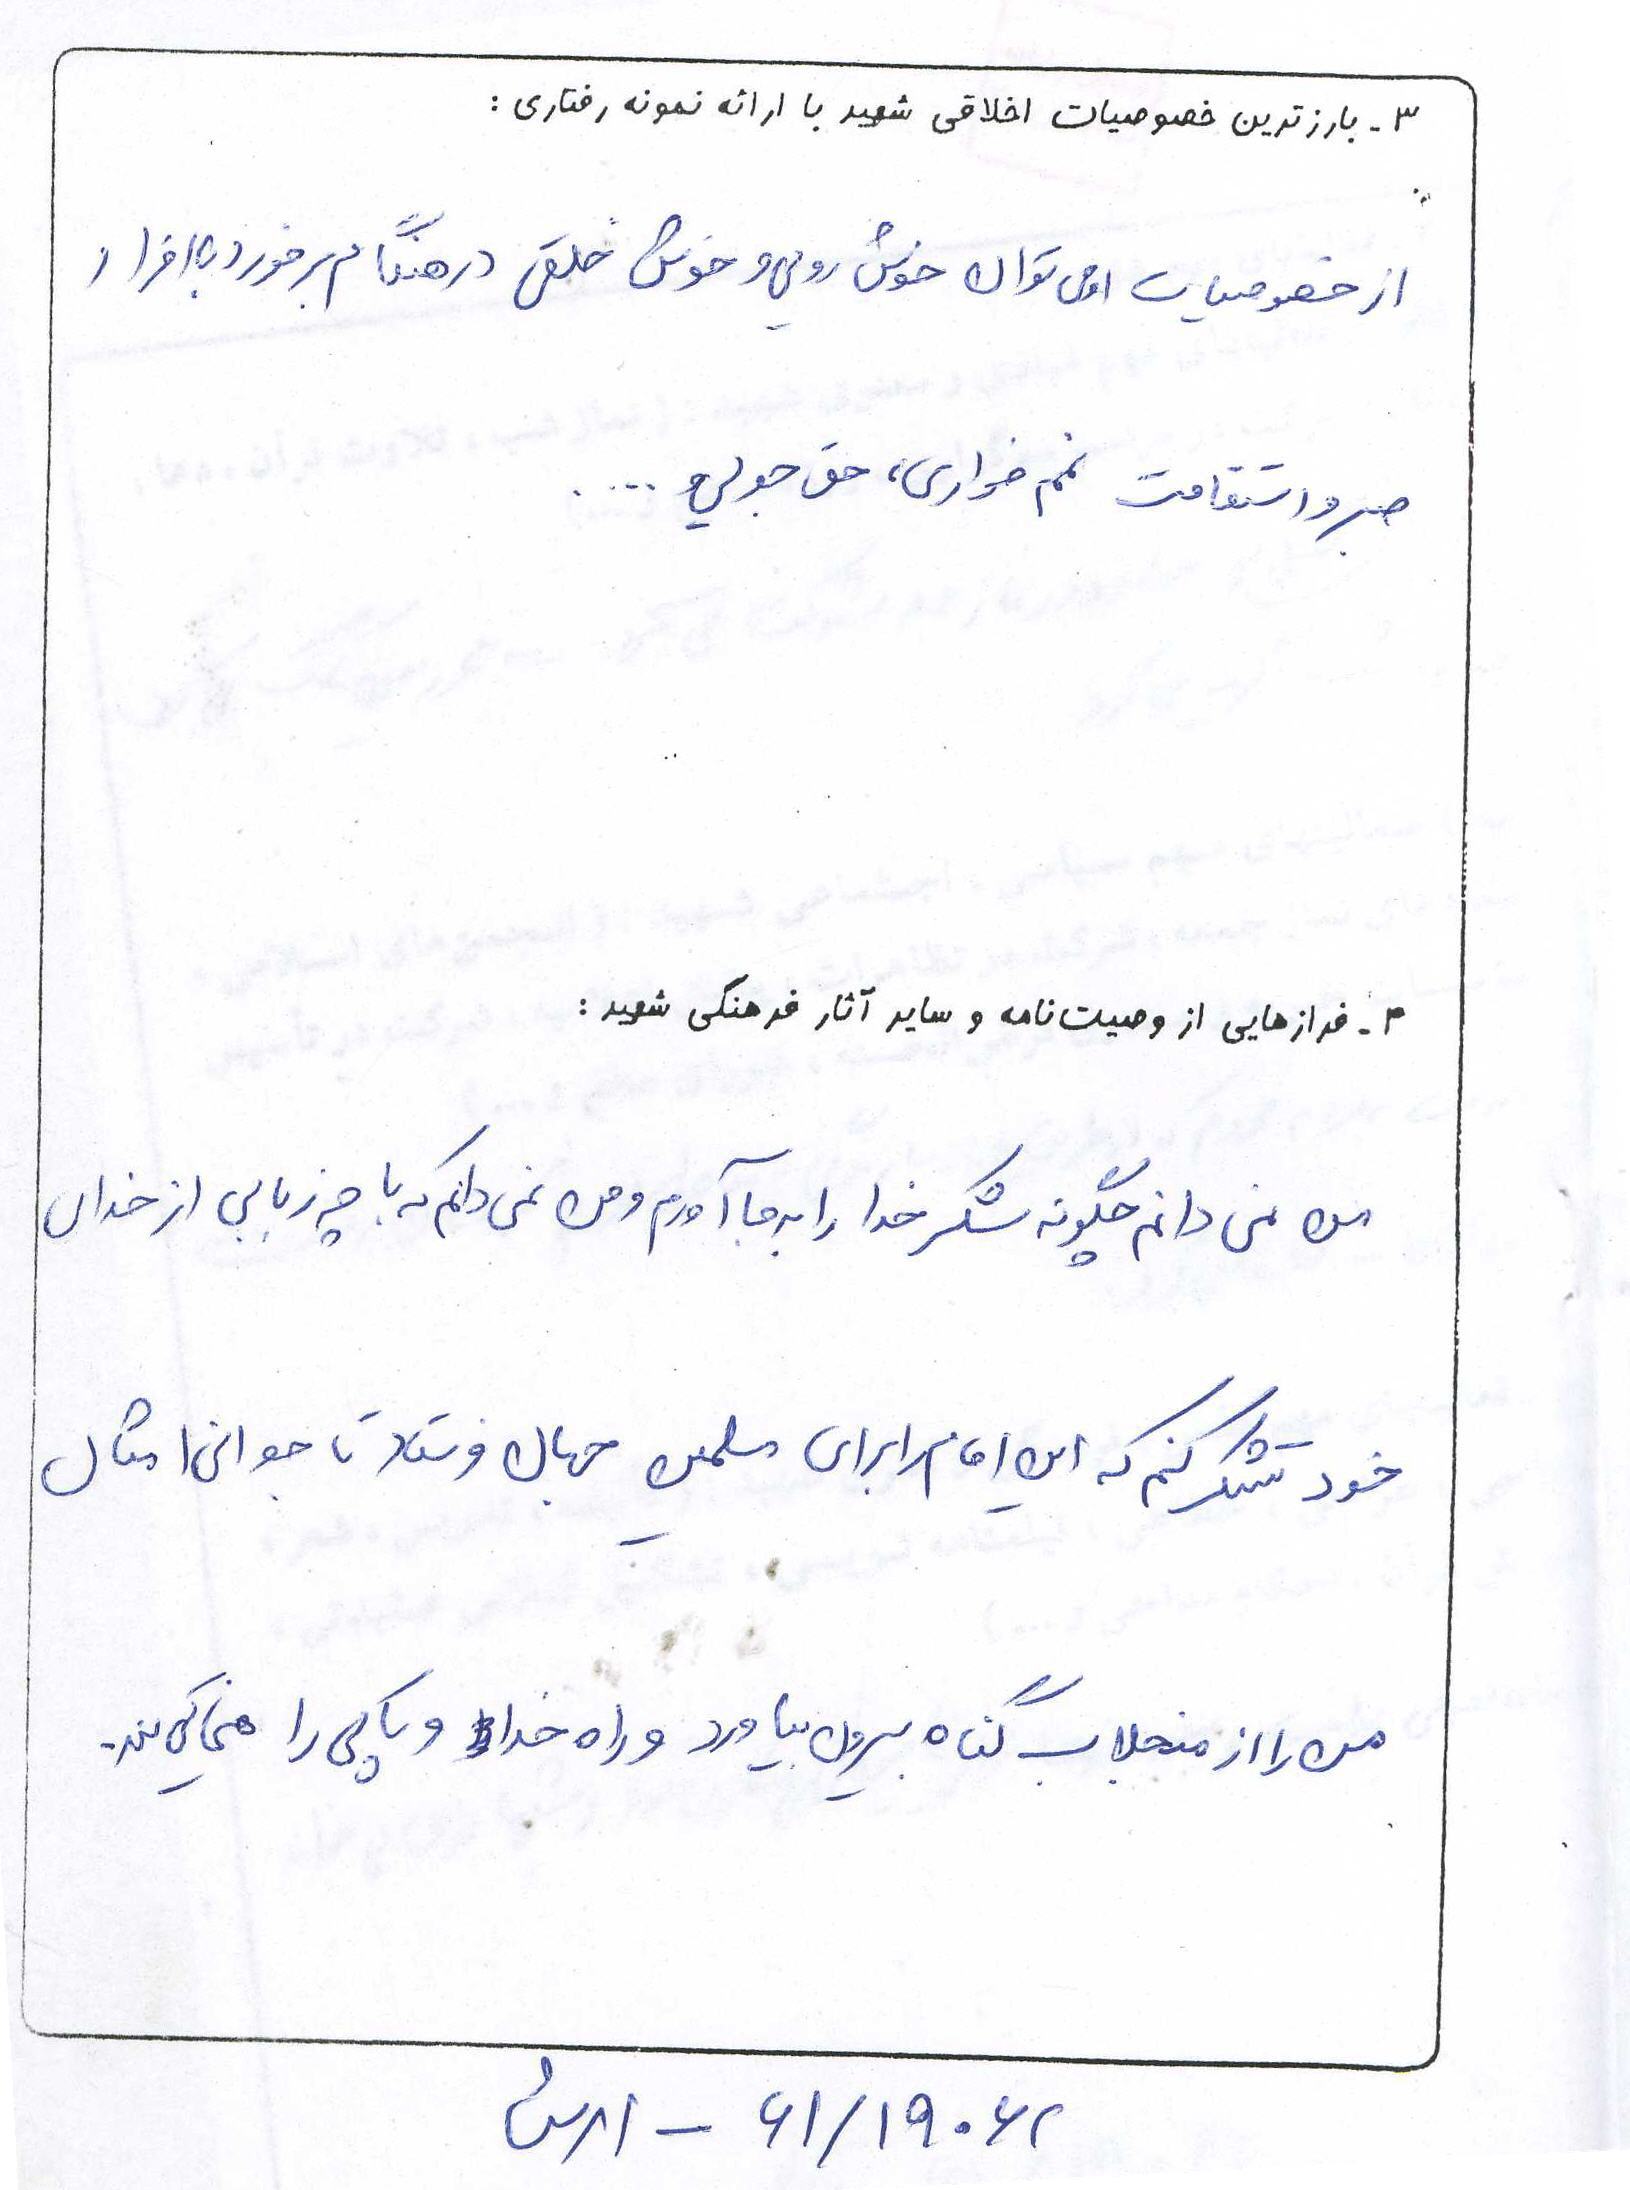 ۳ - بارزترین خصوصیات اخلاقی شهید با ارائه نمونه رفتاری :
از خصوصیات او می توان خوش رویی و خوش خلقی در هنگام برخورد با افراد
صبر و استقامت غم خواری، حق جویی و ....
۴ - فرازهایی از وصیت‌نامه و سایر آثار فرهنگی شهید :
من نمی دانم چگونه شکر خدا را به جا آورم و من نمی دانم که با چه زبانی از خدای
خود تشکر کنم که این امام را برای مسلمین جهان فرستاد تا جوانی امثال
من را از منجلاب گناه بیرون بیاورد و راه خدا و پاکی را
۶۱/۱۹۰۶۲ - ارتش